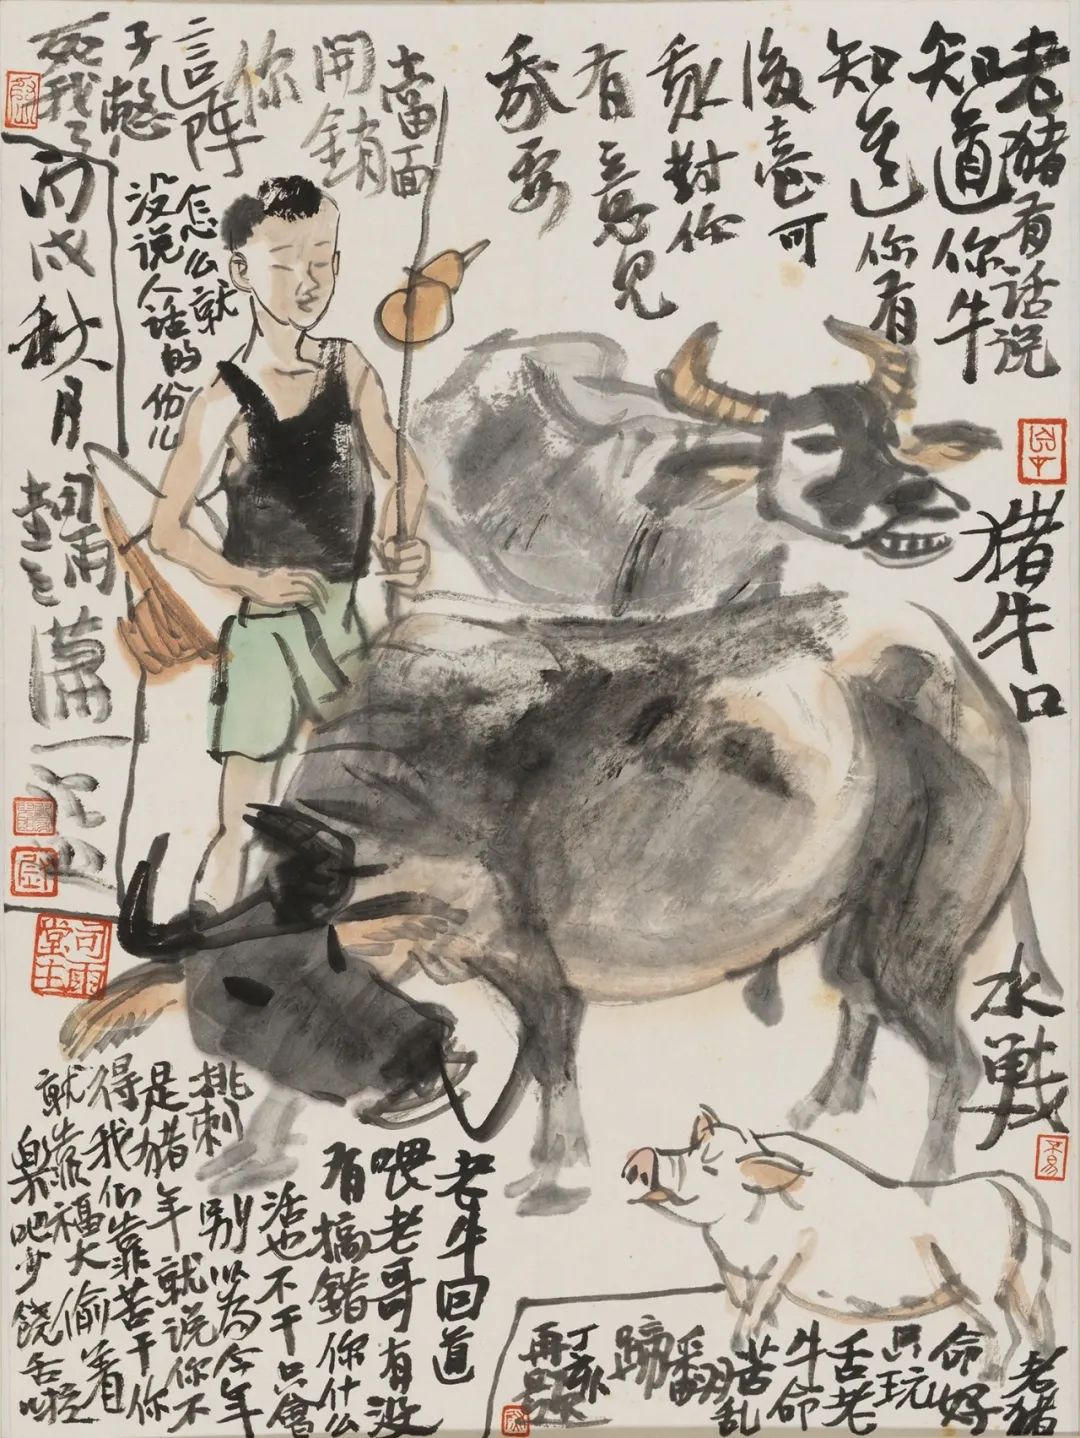 老猪有话说
知道你牛
知道你有
后台可
我对你
有意见
我要
当面
開銷
你
這阵
子憋
死我了
怎么就
没说人话的份儿
丙戌秋月
猪牛口
水战
老牛回道
喂老哥有没
有搞錯你什么
活也不干只會
挑刺别以為今年
是猪年就说你不
得我们靠苦干你
就靠福大偷着
臭吧少饶舌啦
老猪
命好
只玩
舌老
牛命
苦乱
翻
蹄
丁亥
再題